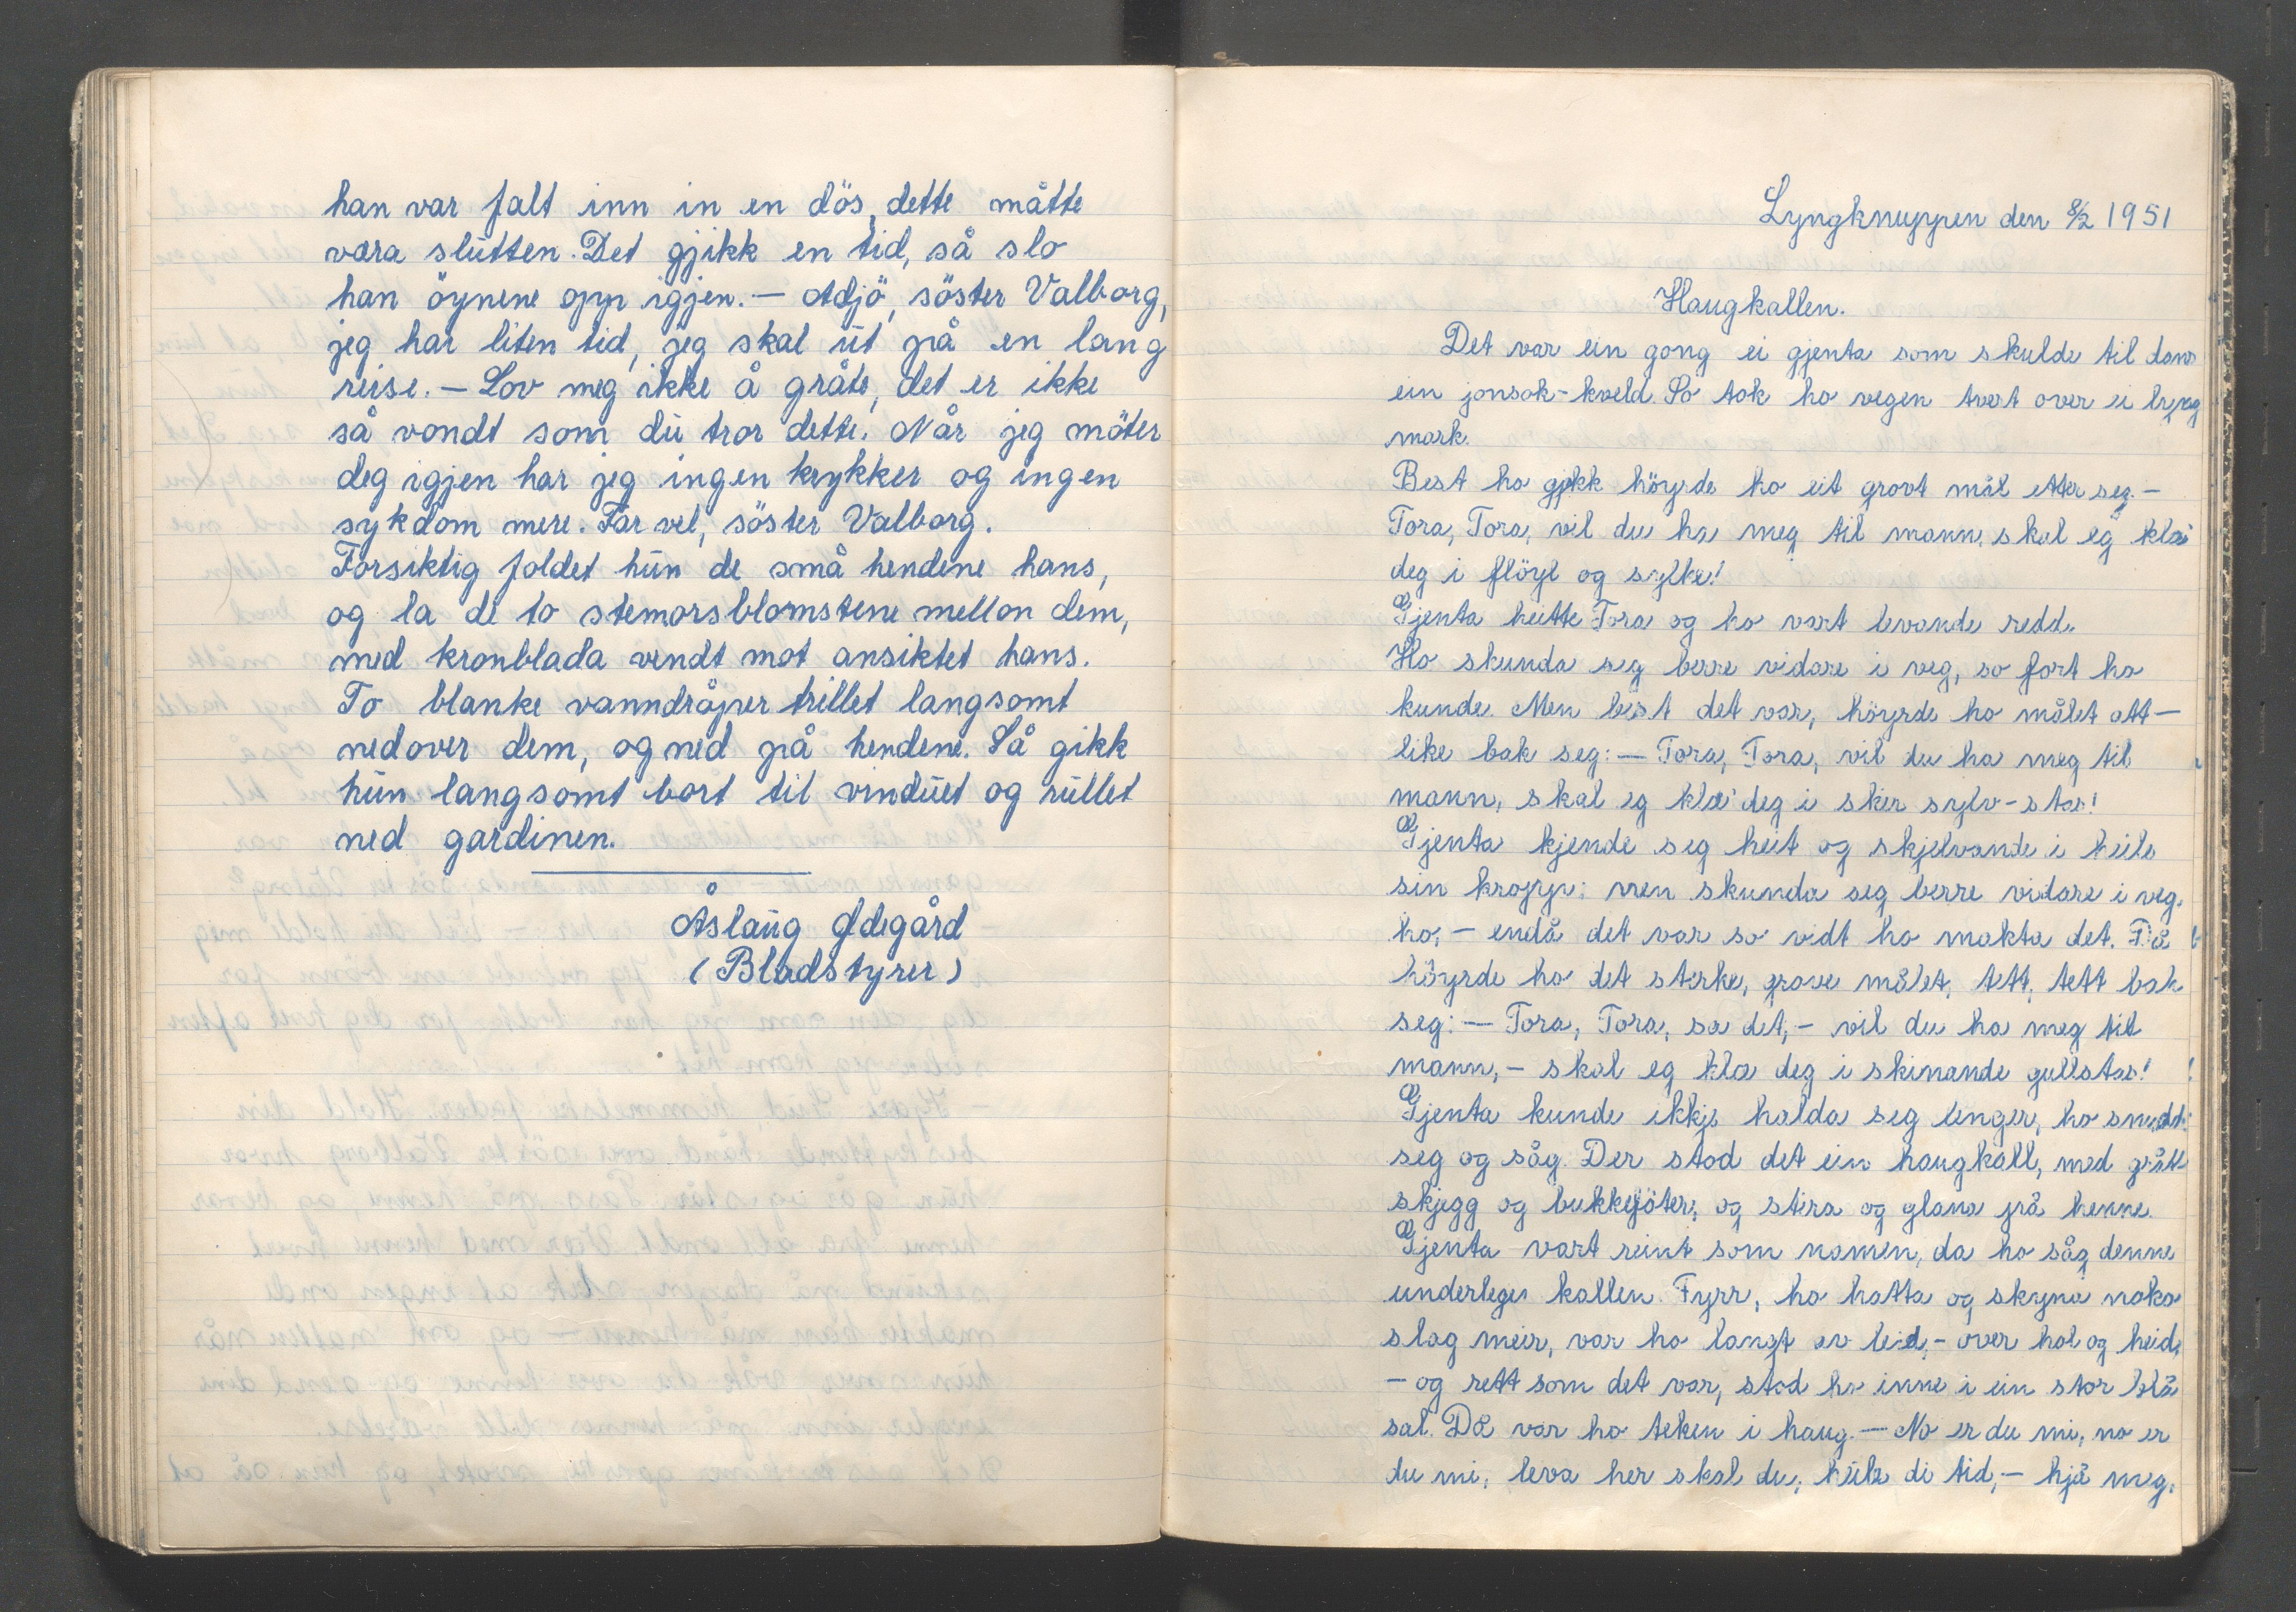 han var falt inn in en dös, dette måtte
væra slutten. Det gjikk en tid, så slo
han öynene opp igjen. — Adjö, söster Valborg,
jeg har liten tid, jeg skal ut på en lang
reise. — Lov meg ikke å gråte, det er ikke
så vondt som du tror dette. Når jeg möter
deg igjen har jeg ingen krykker og ingen
sykdom mere. Far vel, söster Valborg.
Forsiktig foldet hun de små hendene hans,
og la de to stemorsblomstene mellon dem,
med kronblada vendt mot ansiktet hans.
To blanke vanndråper trillet langsomt
nedover dem, og ned på hendene. Så gikk
hun langsomt bort til vinduet og rullet
ned gardinen.
Åslaug Ødegård
(Bladstyrer)
Lyngknuppen den 8/2 1951
Haugkallen.
Det var ein gong ei gjenta som skulde til dans
ein jonsok-kveld. So tok ho vegen tvert over ei lyng
mark.
Best ho gjekk höyrde ho eit grovt mål etter seg. —
Tora, Tora, vil du ha meg til mann, skal eg klæ
deg i flöyl og sylke!
Gjenta heitte Tora og ho vart levande redd.
Ho skunda seg berre vidare i veg, so fort ho
kunde. Men best det var, höyrde ho målet att —
like bak seg: — Tora, Tora, vil du ha meg til
mann, skal eg klæ deg i skir sylv-stas!
Gjenta kjende seg heit og skjelvande i heile
sin kropp; men skunda seg berre vidare i veg,
ho, — endå det var so vidt ho makta det. Då
höyrde ho det sterke, grove målet, tett, tett bak
seg: — Tora, Tora, sa det, — vil du ha meg til
mann, — skal eg klæ deg i skinande gullstas!
Gjenta kunde ikkje halda seg lenger, ho snudde
seg og såg. Der stod det ein haugkall, med grått
skjegg og bukkeföter, og stira og glana på henne.
Gjenta vart reint som namen, da ho såg denne
underlege kallen. Fyrr, ho hatta og skyna noko
slag meir, var ho langt av leid, — over hol og heid,
— og rett som det var, stod ho inne i ein stor blå
sal. Då var ho teken i haug. — No er du mi, no er
du mi, leva her skal du, heile di tid, — hjå meg.